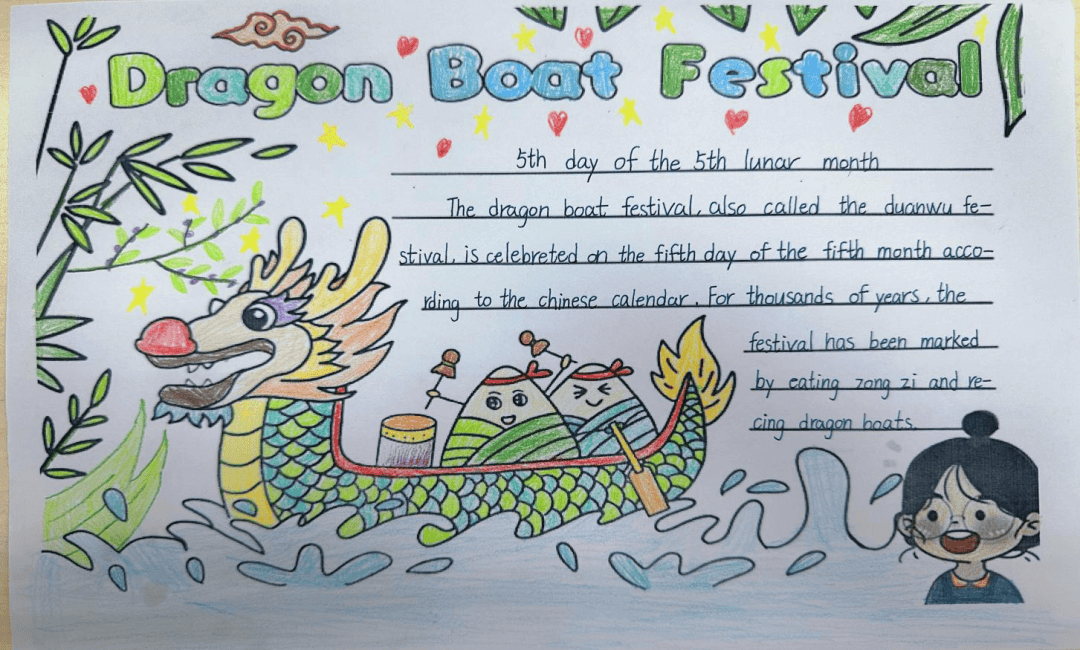 Dragon Boat Festival
5th day of the 5th lunar month
The dragon boat festival, also called the duanwu fe-
stival, is celebreted on the fifth day of the fifth month acco-
rding to the chinese calendar. For thousands of years, the
festival has been marked
by eating zong zi and re-
cing dragon boats.